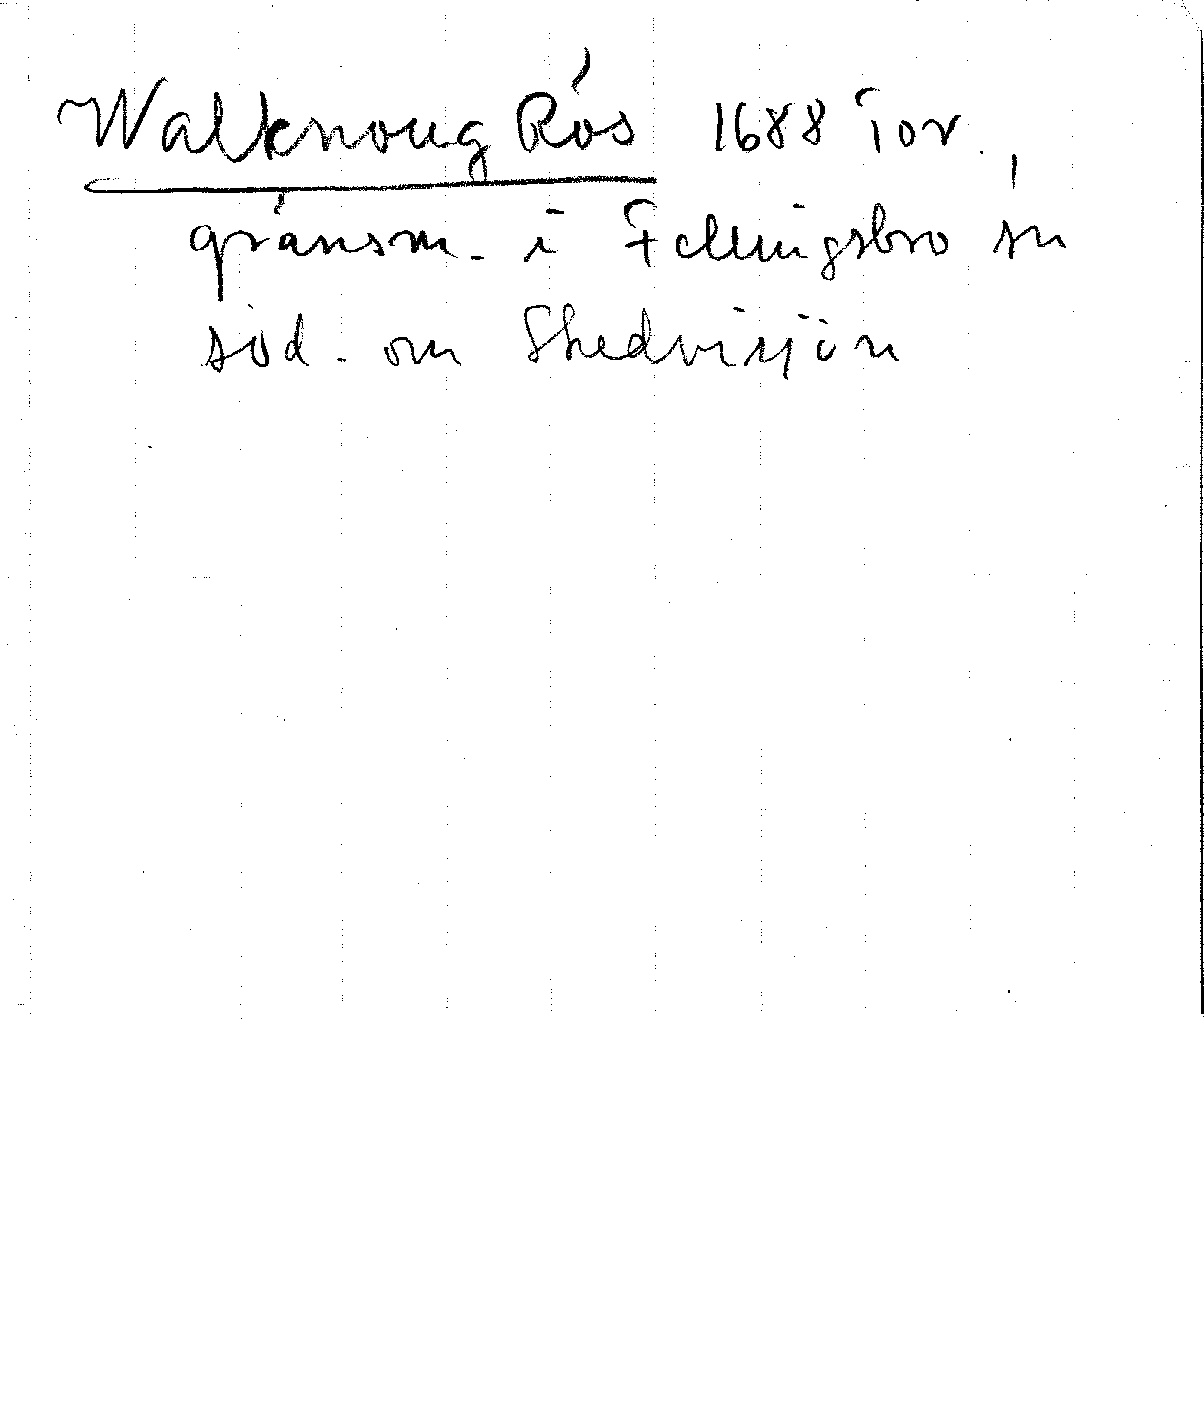 Walknoug Rös 1688 Tor.
gränsm. i Fellingsbro sn
söd. om Skedvisjön